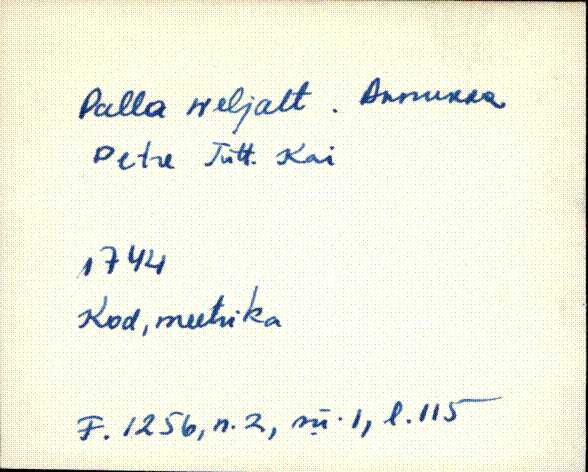 Palla weljalt. Annukka
Petre Tütt. Kai
1744
Kod, meetrika
F. 1256, n. 2, sü. 1, l. 115